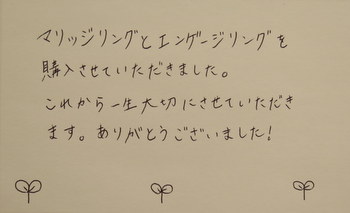 マリッジリングとエンゲージリングを
購入させていただきました。
これから一生大切にさせていただき
ます。ありがとうございました!